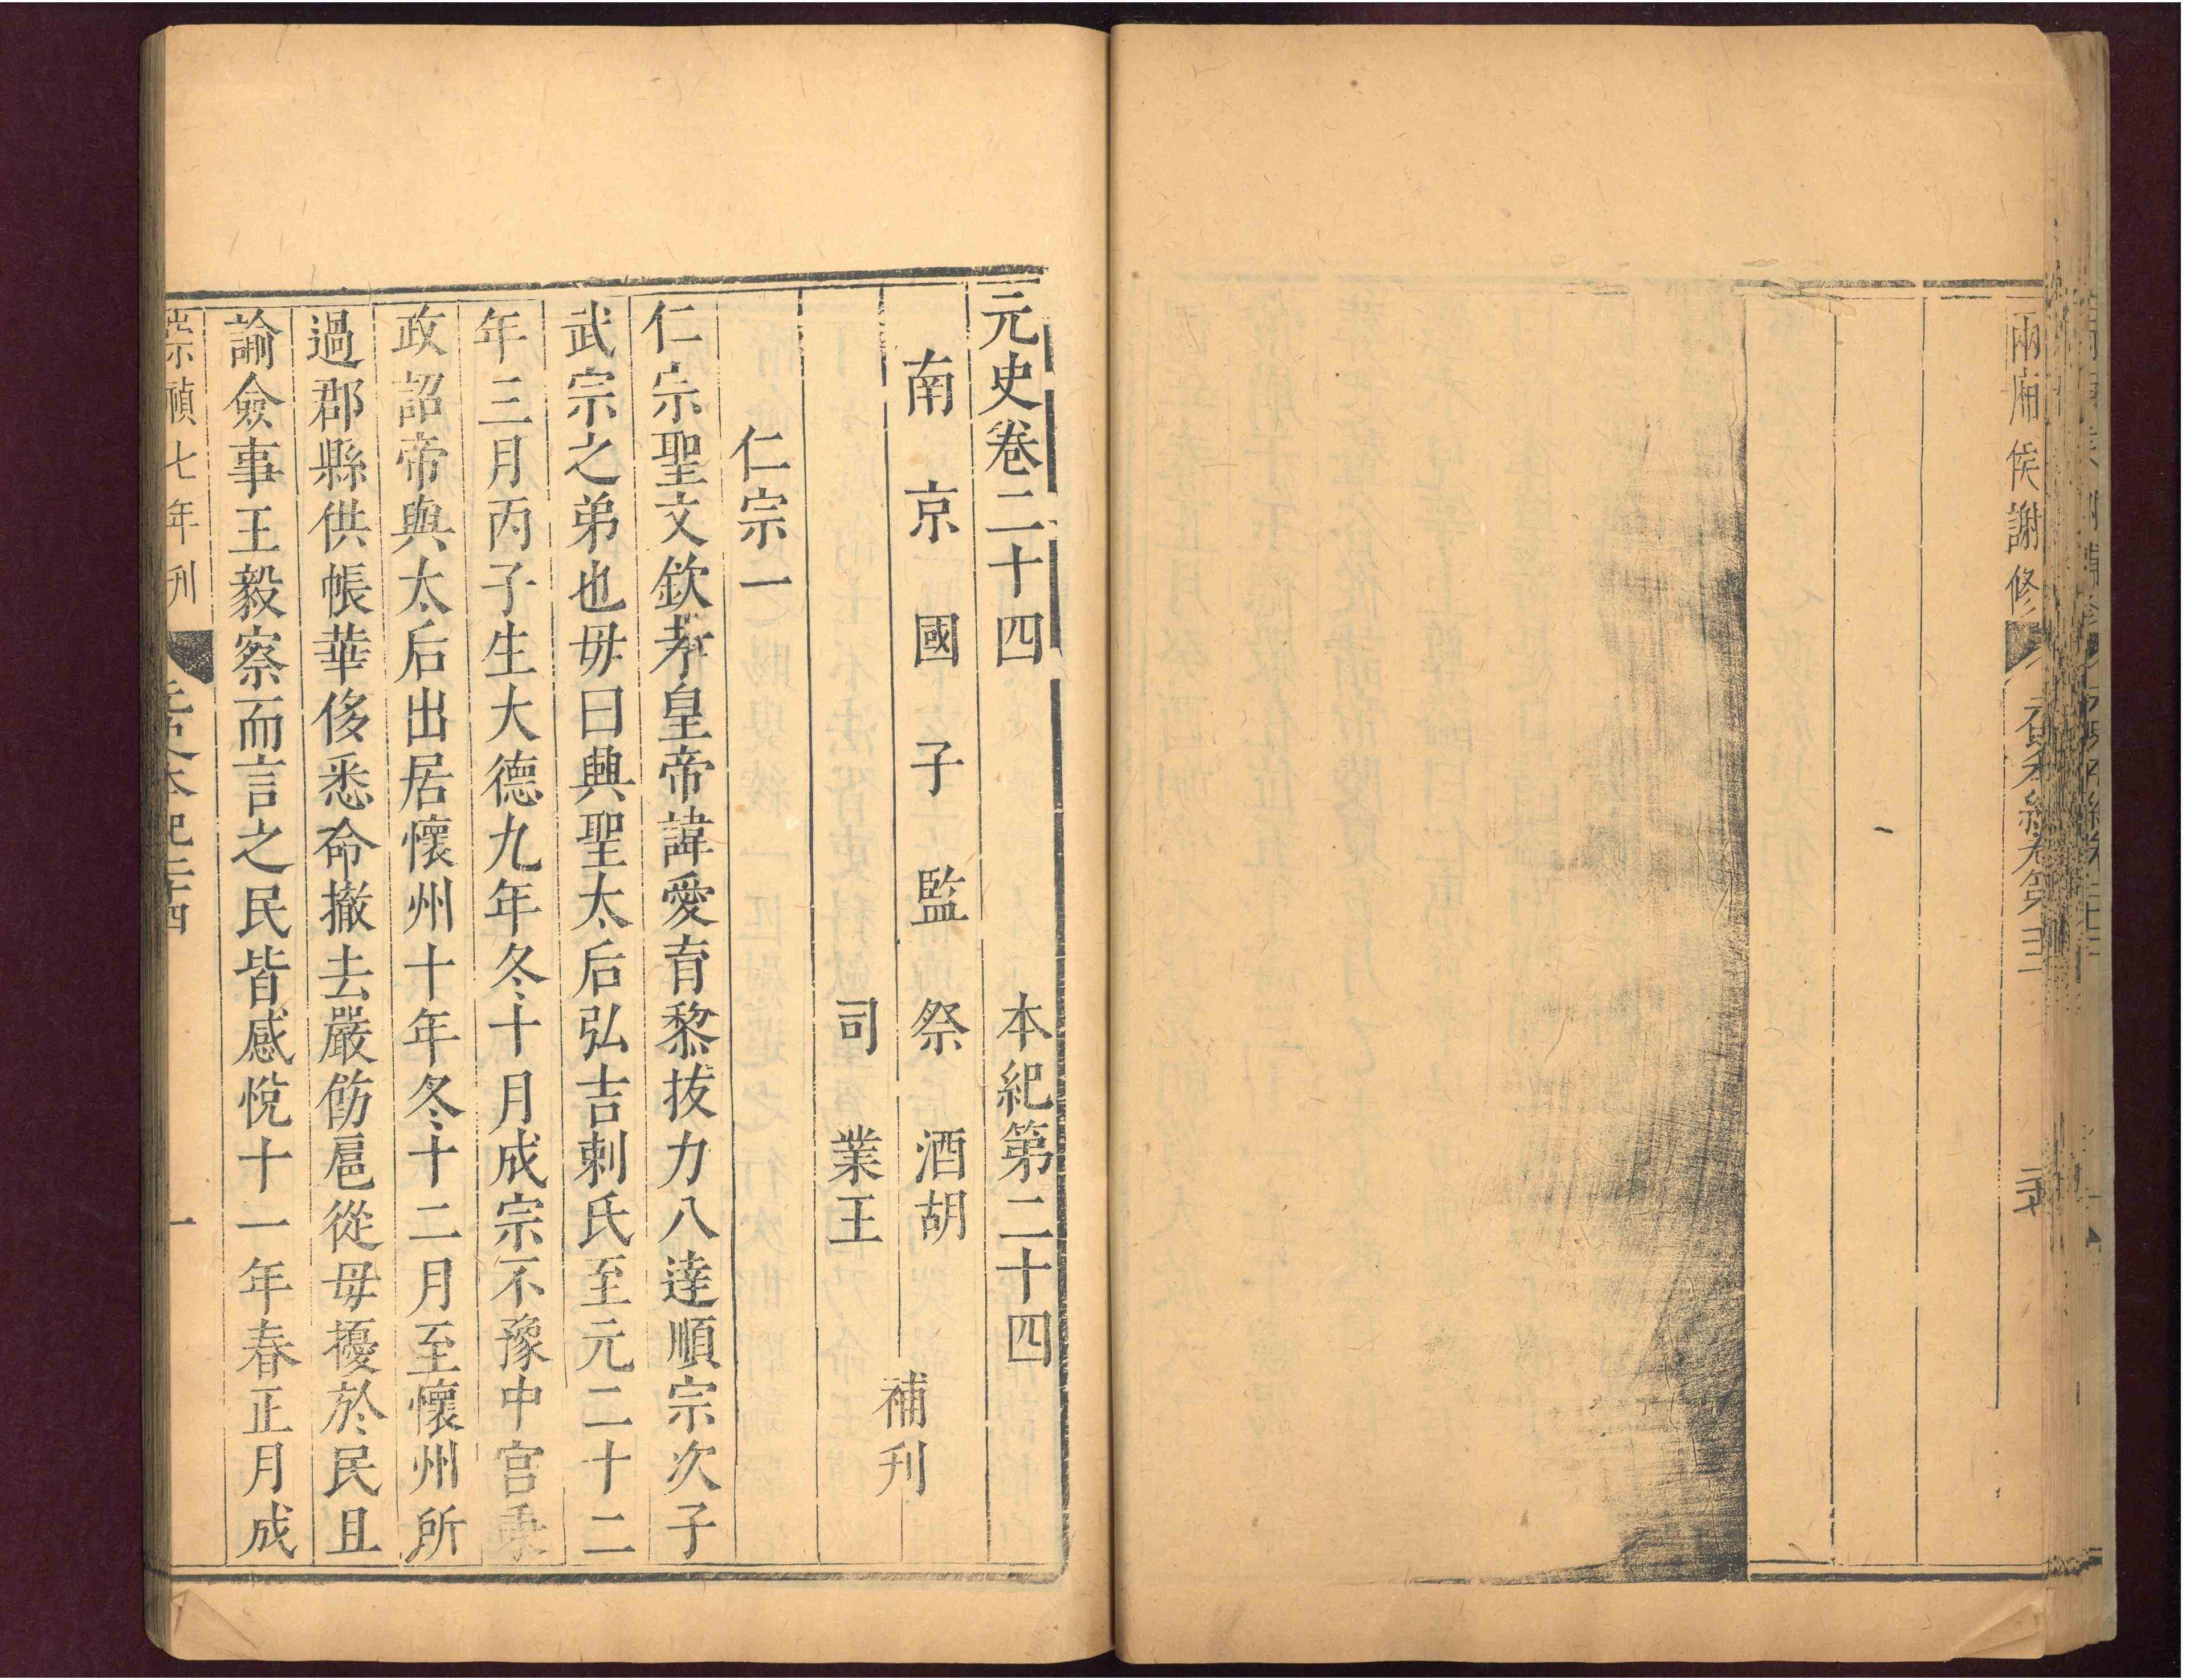 兩廂侯謝修
元史卷二十四
本紀第二十四
南京國子監祭酒胡
司業王
補刊
仁宗一
仁宗聖文欽孝皇帝諱愛育黎拔力八達順宗次子
武宗之弟也毋曰興聖太后弘吉剌氏至元二十二
年三月丙子生大德九年冬十月成宗不豫中宮秉
政詔帝與太后出居懷州十年冬十二月至懷州所
過郡縣供帳華侈悉命撤去嚴飭扈從毋擾於民且
諭僉事王毅察而言之民皆感悅十一年春正月成
崇禎七年刊
元史本紀二十四
一